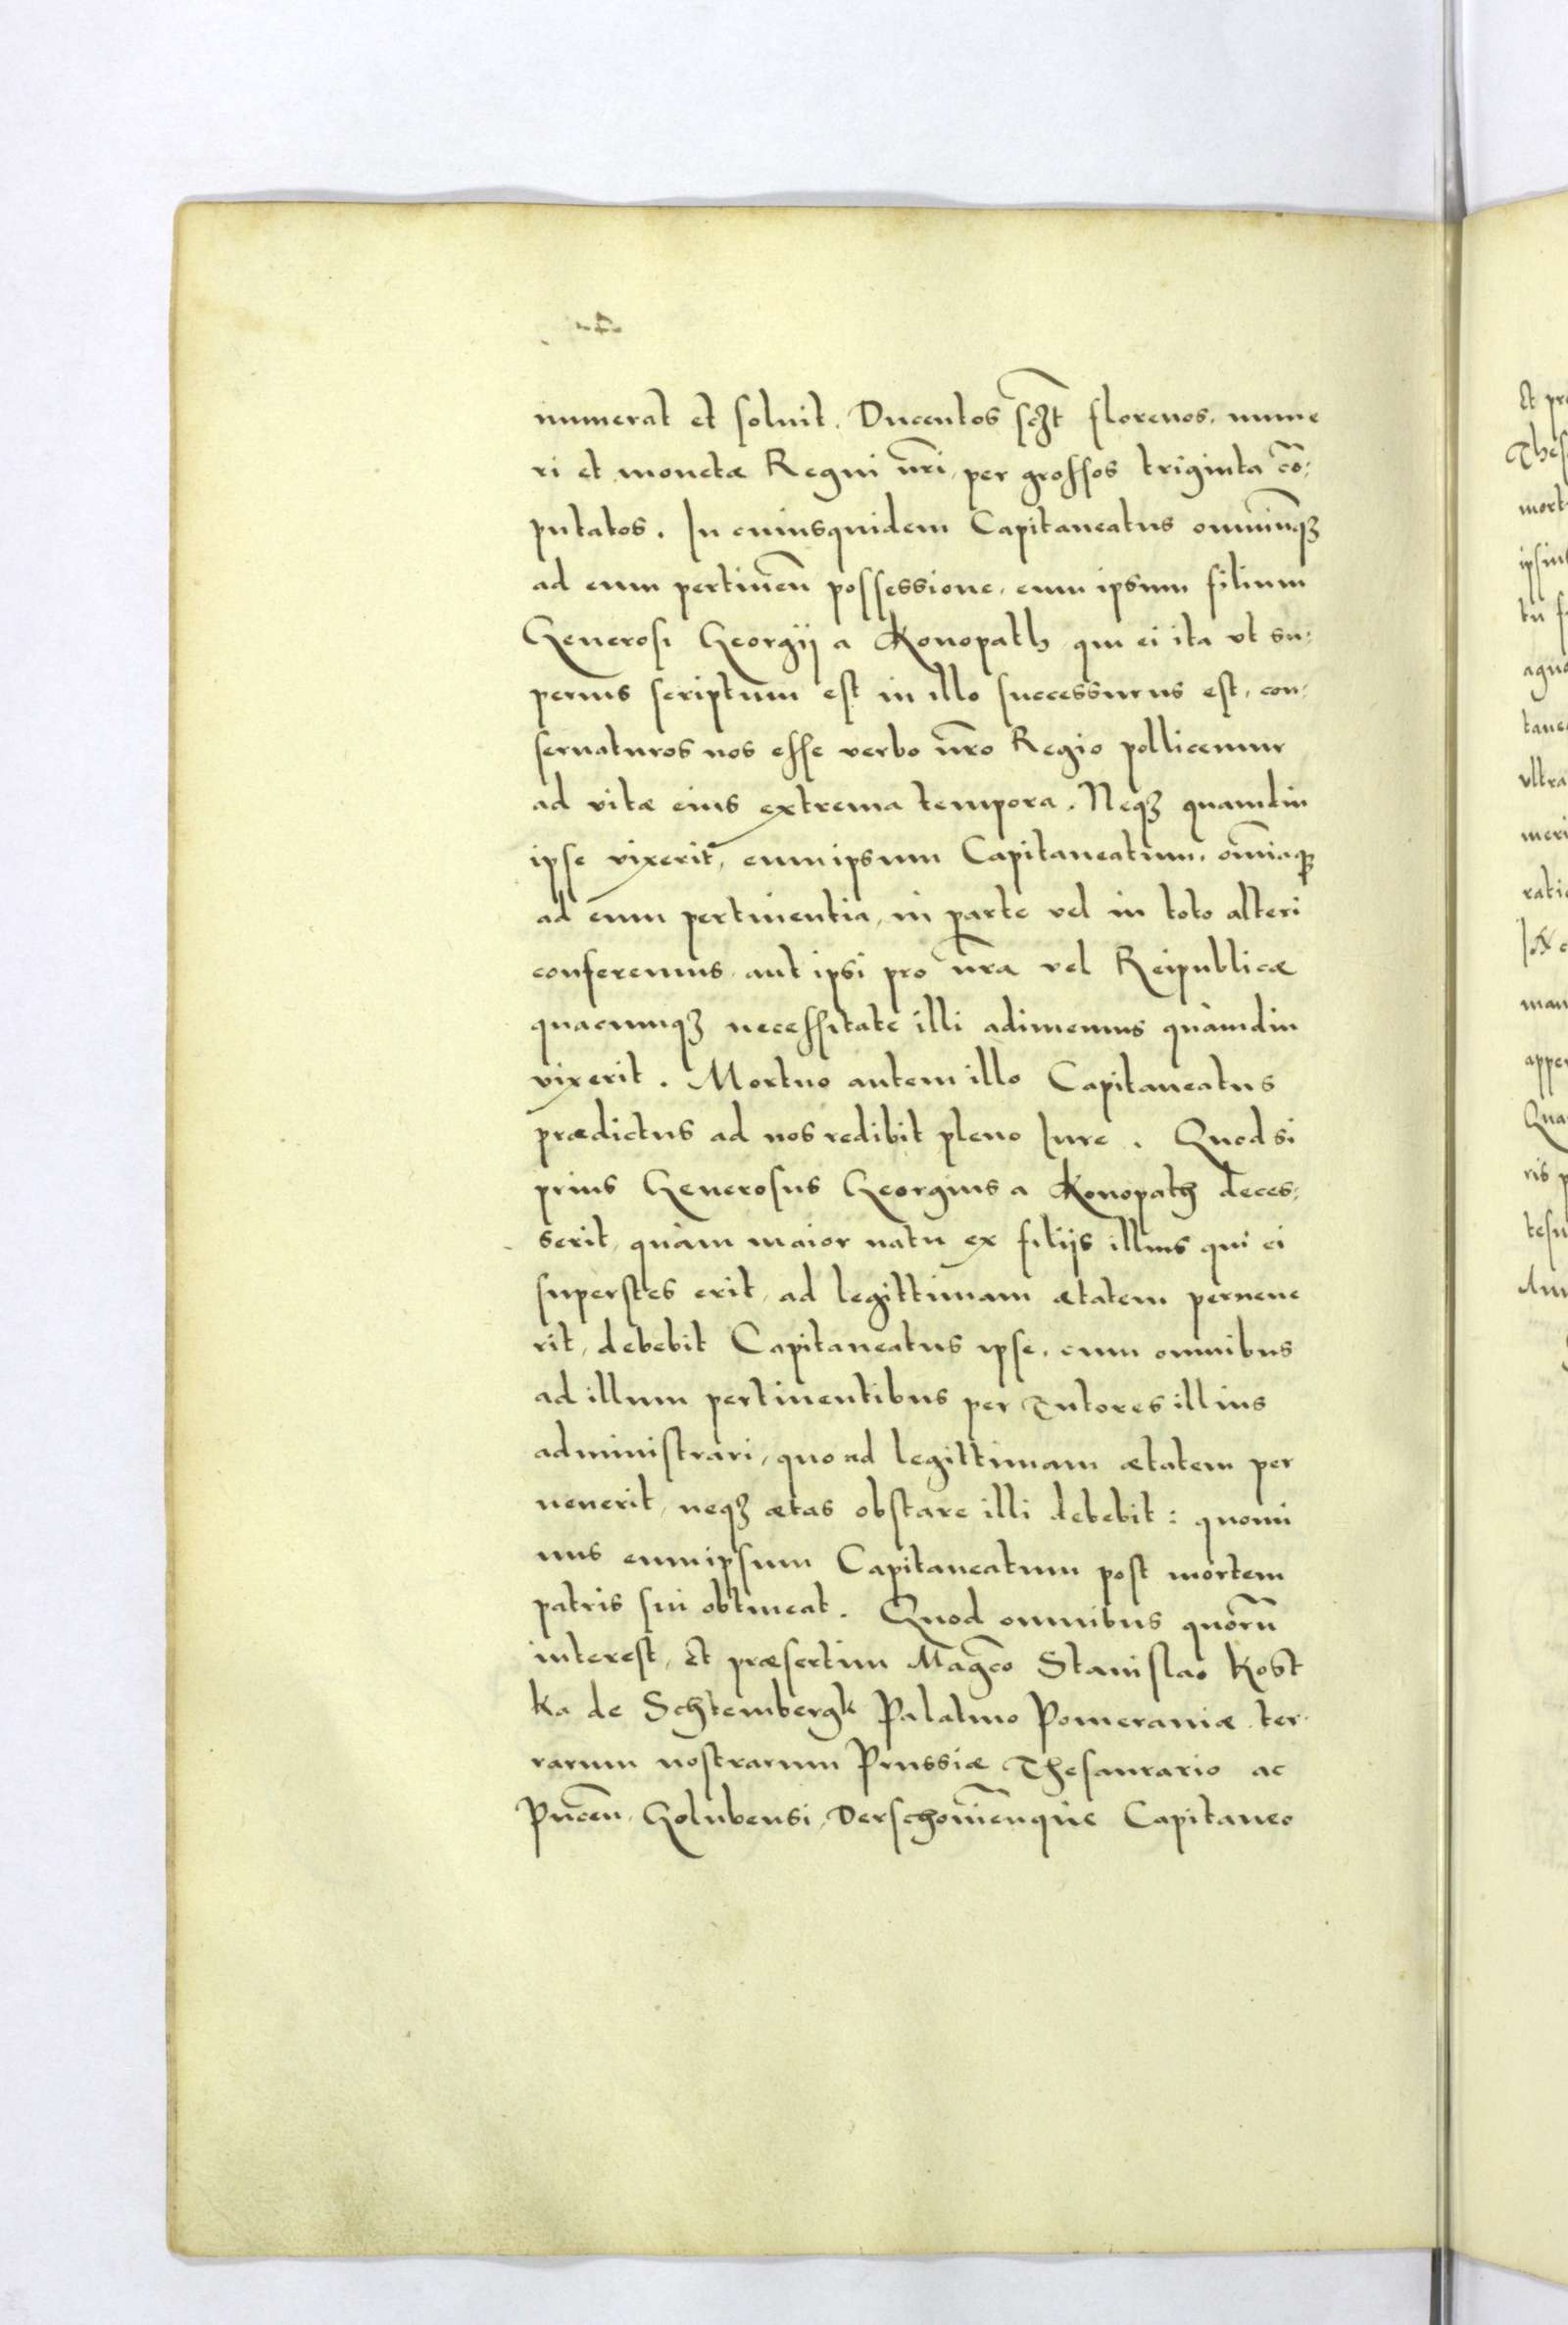 numerat et soluit. Ducentos sczt florenos, nume
ri et monetæ Regni nr̃i, per grossos triginta cõ:
putatos. In cuiusquidem Capitaneatus omniumqꝫ
ad eum pertineñ possessione, eum ipsum filium
Generosi Georgij a Konopath qui ei ita vt su:
perius scriptum est in illo successurus est, con:
seruaturos nos esse verbo nr̃o Regio pollicemur
ad vitæ eius extrema tempora. Neqꝫ quamdiu
ipse vixerit, eumipsum Capitaneatum, om̃iaqꝫ
ad eum pertinentia, in parte vel in toto alteri
conferemus, aut ipsi pro nr̃a vel Reipublicæ
quacumqꝫ necessitate illi adimemus quàmdiu
vixerit. Mortuo autem illo Capitaneatus
prædictus ad nos redibit pleno Iure. Quod si
prius Generosus Georgius a Konopath deces:
serit, quàm maior natu ex filijs illius qui ei
superstes erit, ad legittimam ætatem peruene
rit, debebit Capitaneatus ipse, cum omnibus
ad illum pertinentibus per Tutores illius
administrari, quo ad legittimam ætatem per
uenerit, neqꝫ ætas obstare illi debebit: quomi
nus eumipsum Capitaneatum post mortem
patris sui obtineat. Quod omnibus quorũ
interest, Et præsertim Mag̃co Stanislao Kost
ka de Schtembergk Palatino Pomeraniæ ter
rarum nostrarum Prussiæ Thesaurario ac
Puceñ, Golubensi, Derschouieñque Capitaneo
Et pr
Thes
mort
ipsiu
tu f
agno
tane
vltra
meri
ratio
IN c
man
appe
Qua
ris p
testi
Ann